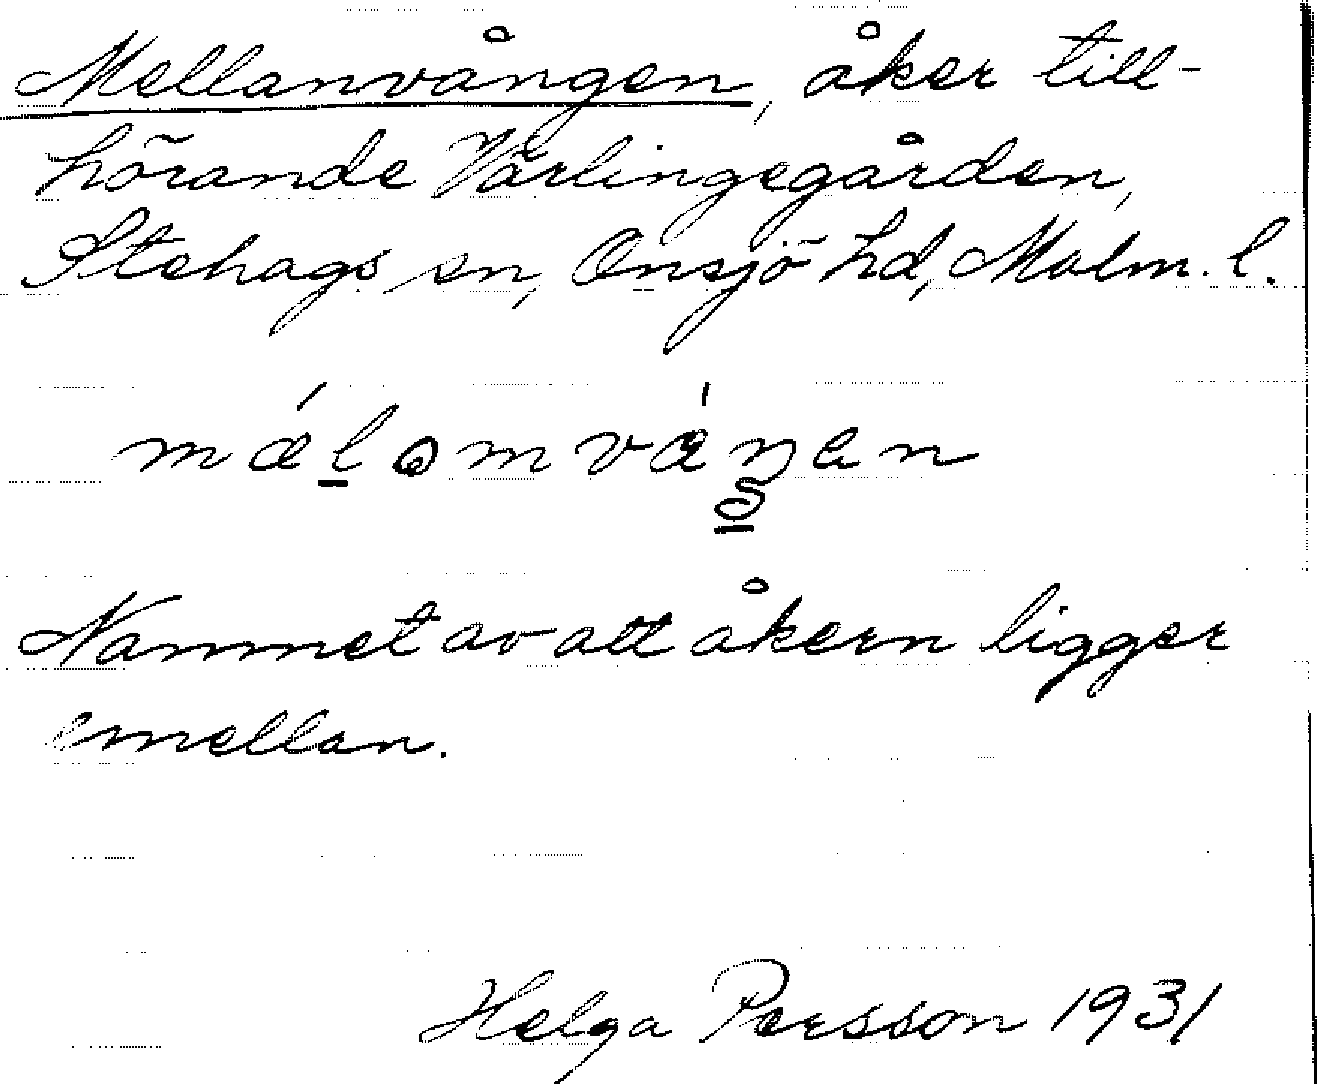 Mellanvången, åker till-
hörande Vårlingegården,
Stehags sn, Onsjö hd, Malm. l.
Namnet av att åkern ligger
emellan.
Helga Persson 1931